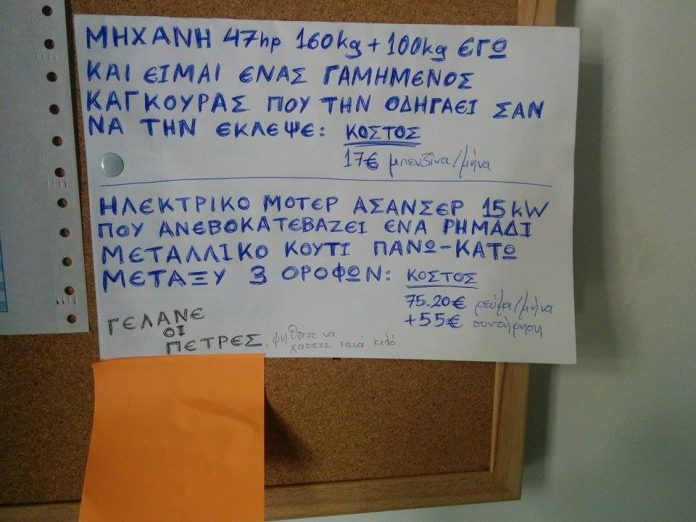 ΜΗΧΑΝΗ 47hp 160kg + 100kg ΕΓΩ
ΚΑΙ ΕΙΜΑΙ ΕΝΑΣ ΓΑΜΗΜΕΝΟΣ
ΚΑΓΚΟΥΡΑΣ ΠΟΥ ΤΗΝ ΟΔΗΓΑΕΙ ΣΑΝ
ΝΑ ΤΗΝ ΕΚΛΕΨΕ: ΚΟΣΤΟΣ
17€ μπενζίνα/μήνα
ΗΛΕΚΤΡΙΚΟ ΜΟΤΕΡ ΑΣΑΝΣΕΡ 15 kW
ΠΟΥ ΑΝΕΒΟΚΑΤΕΒΑΖΕΙ ΕΝΑ ΡΗΜΑΔΙ
ΜΕΤΑΛΛΙΚΟ ΚΟΥΤΙ ΠΑΝΩ-ΚΑΤΩ
ΜΕΤΑΞΥ 3 ΟΡΟΦΩΝ: ΚΟΣΤΟΣ
75.20€ ρεύμα/μήνα
+55€ συντήρηση
ΓΕΛΑΝΕ
ΟΙ
ΠΕΤΡΕΣ, ψηθείτε να
χάσετε κανά κιλό